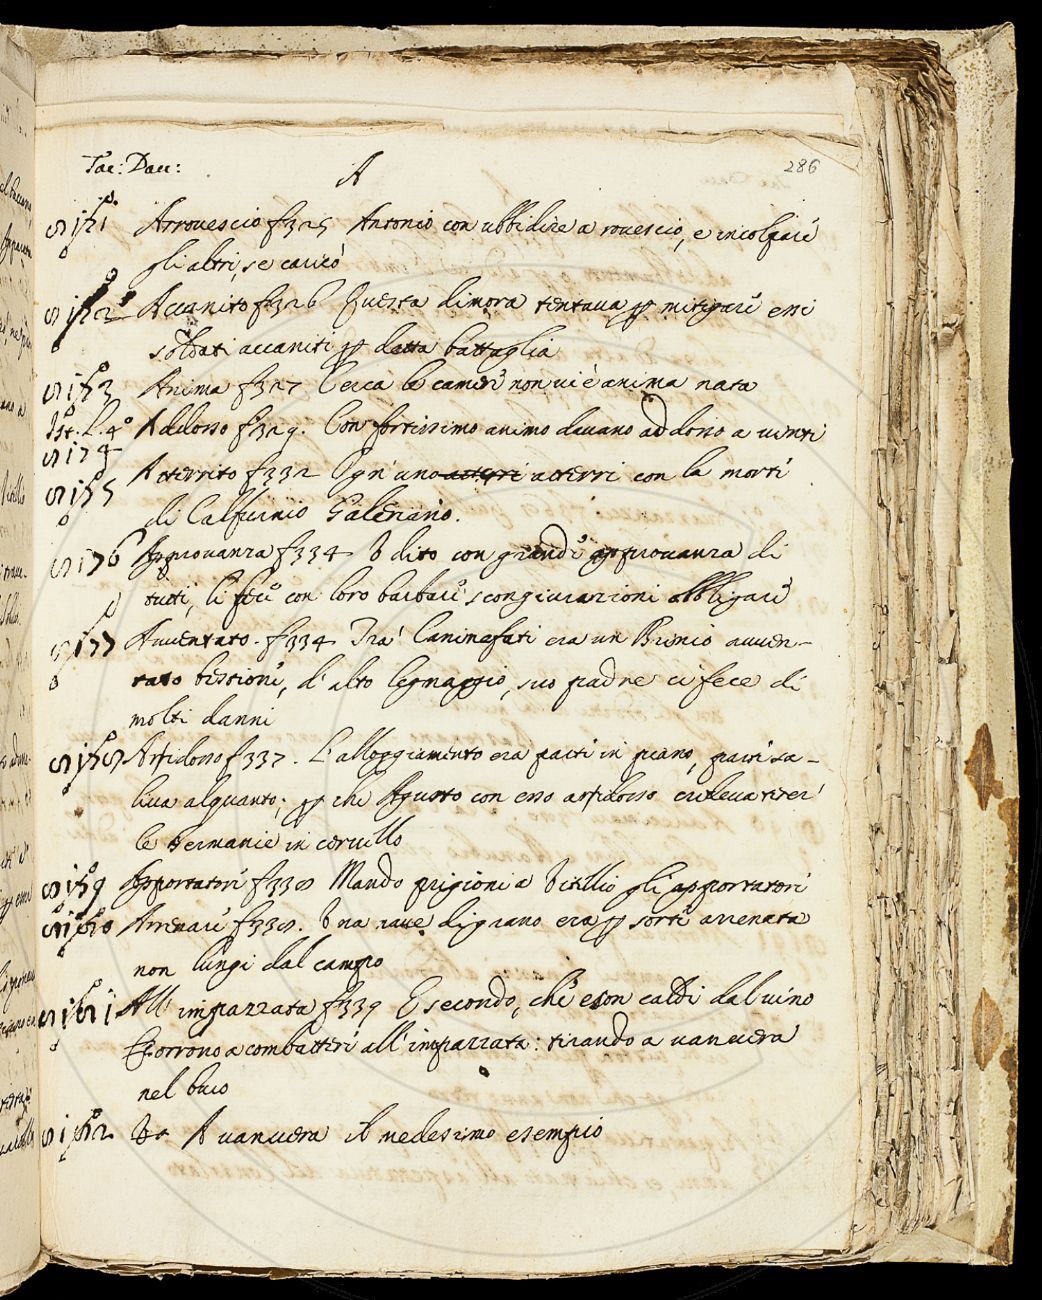 Tac: Dau: A 286
S 171 Arrouescio f 325 Antonio con ubbidire a rouescio, e incolpare
gli altri, se caricò
S 172 Accanito f 326 Questa dimora tentaua p mitigare essi
soldati accaniti p detta battaglia
S 173 Anima f 327 Cerca le camere non ui è anima nata
Ist. L. 4° Addosso f 329. Con fortissimo animo dauano addosso a uinti
S 174
S 175 Atterrito f 332 Ogn'uno atterri con la morte
di Calfurnio Galeriano.
S 176 Approuanza f 334 Udito con grande approuanza di
tutti, li fece con loro barbare scongiurazioni obbligare
S 177 Auuentato. f 334 Trà Caninefati era un Brinio auuen-
tato bestione, d'alto legnaggio, suo padre ci fece di
molti danni
S 178 Arfidosso f 337. L'alloggiamento era parte in piano, parte sa-
liua alquanto; p che Agusto con esso arfidosso credeua tener
le Germanie in ceruello
S 179 Apportatori f 338 Mandò prigioni a Vitellio gli apportatori
S 180 Arrenare f 338. Una naue di grano era p sorte arrenata
non lungi dal campo
S 181 All'impazzata f 339 E secondo, che eron caldi dal uino
Corrono a combattere all'impazzata: tirando a uanuera
nel buio
S 182 A uanuera il medesimo esempio